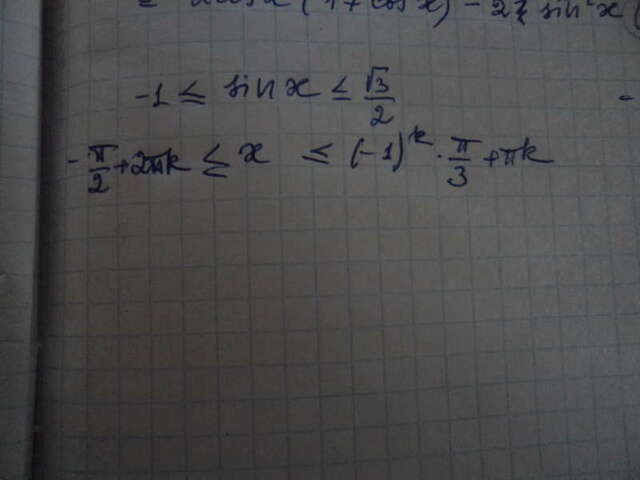 (1+cos x) - 2 sin²x (
-1 ≤ sin x ≤ √3/2
-π/2 + 2πk ≤ x ≤ (-1)^k · π/3 + πk